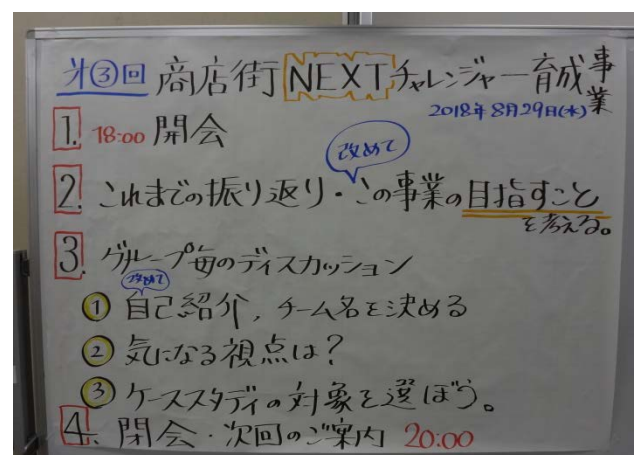 第③回 商店街 NEXTチャレンジャー育成事業
2018年8月29日(水)
1. 18:00 開会
改めて
2. これまでの振り返り・この事業の目指すこと
を考える。
3. グループ毎のディスカッション
改めて
① 自己紹介, チーム名を決める
② 気になる視点は?
③ ケーススタディの対象を選ぼう。
4. 閉会・次回のご案内 20:00